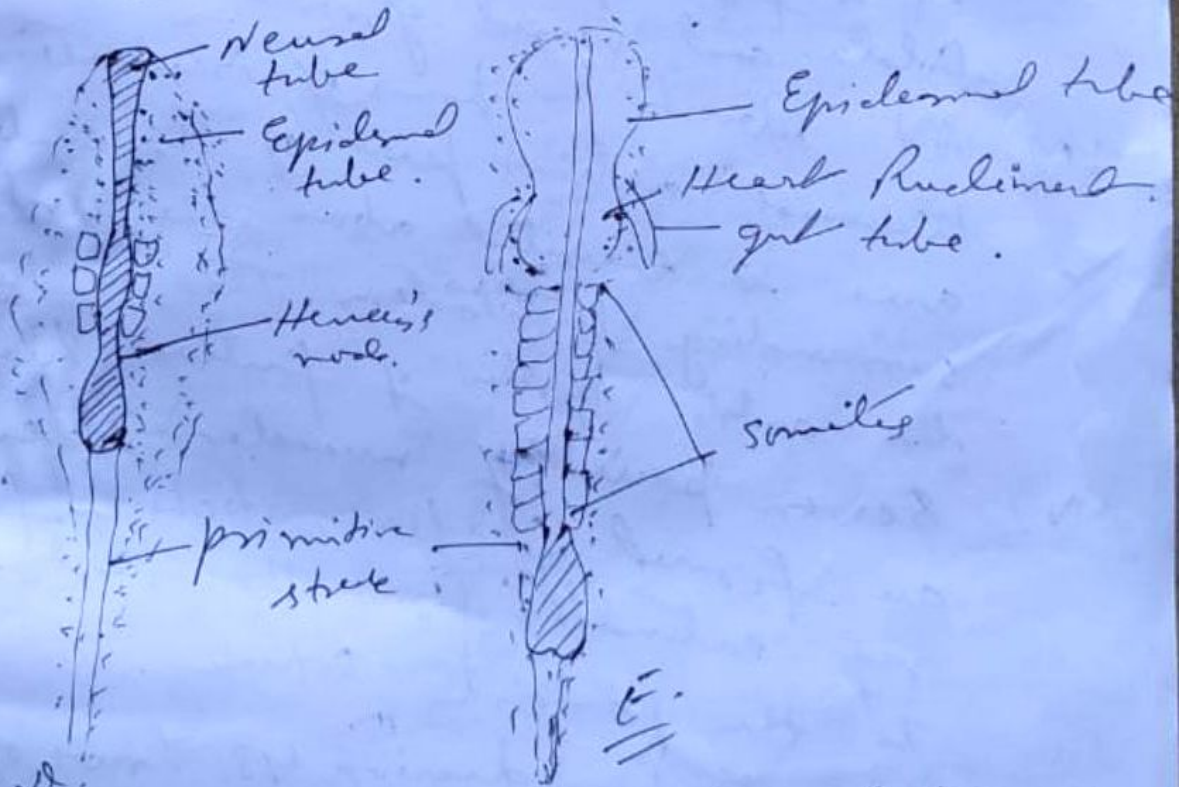 Neural
tube
Epidermal
tube.
Hensen's
node.
primitive
streak.
Epidermal tube
Heart Rudiment.
gut tube.
somites
E.
D.